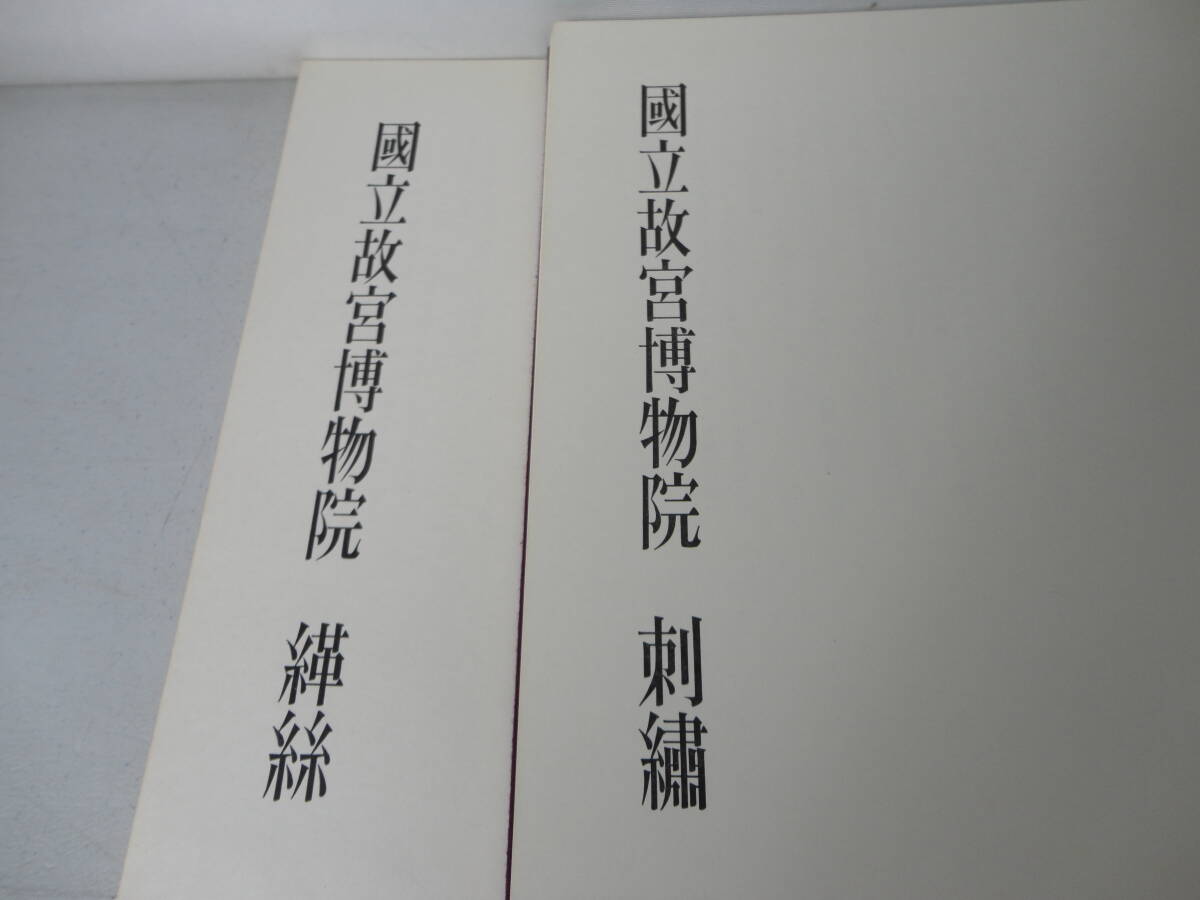 國立故宮博物院 刺繡
國立故宮博物院 緙絲